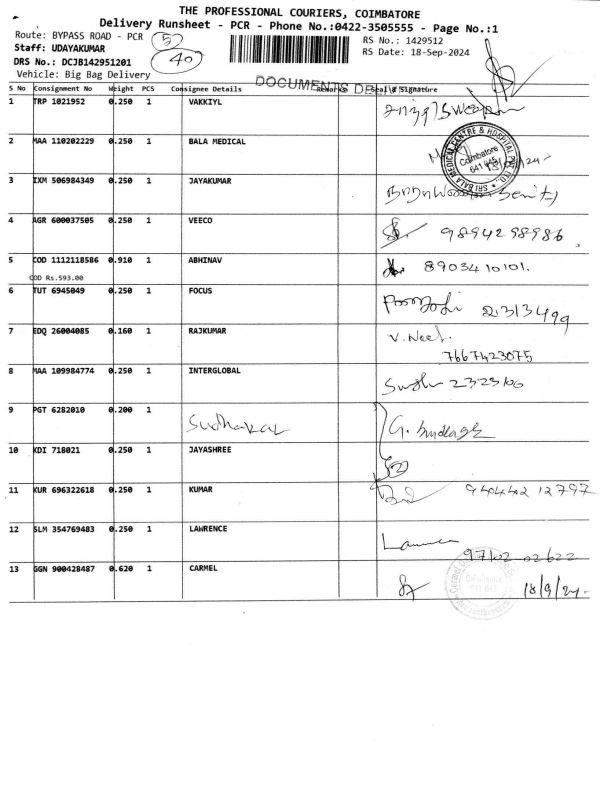 THE PROFESSIONAL COURIERS, COIMBATORE
Delivery Runsheet - PCR - Phone No.:0422-3505555 - Page No.:1
Route: BYPASS ROAD - PCR
RS No.: 1429512
Staff: UDAYAKUMAR
40
RS Date: 18-Sep-2024
DRS No.: DCJB142951201
Vehicle: Big Bag Delivery
DOCUMENTS
S No Consignment No Weight PCS Consignee Details Remarks Seal & Signature
1 TRP 1021952 0.250 1 VAKKIYL
2 MAA 110202229 0.250 1 BALA MEDICAL
SRI BALA MEDICAL CENTRE & HOSPITAL PVT. LTD.
Coimbatore
641 045
3 IXM 506984349 0.250 1 JAYAKUMAR
4 AGR 600037505 0.250 1 VEECO 9894298986
5 COD 1112118586 0.910 1 ABHINAV 8903410101.
COD Rs.593.00
6 TUT 6945049 0.250 1 FOCUS
7 EDQ 26004085 0.160 1 RAJKUMAR
7667423075
8 MAA 109984774 0.250 1 INTERGLOBAL
9 PGT 6282010 0.200 1 Sudhakar
10 KDI 718021 0.250 1 JAYASHREE
11 KUR 696322618 0.250 1 KUMAR
12 SLM 354769483 0.250 1 LAWRENCE
13 GGN 900428487 0.620 1 CARMEL 18/9/24-